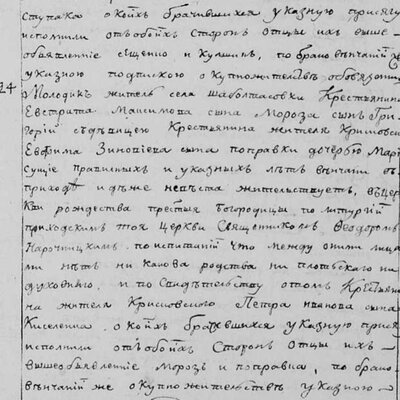 ступкахъ о коихъ брачившихся указную присягу
исполнили отъ обоихъ сторонъ отцы ихъ выше
объявленнiе сященно и Кулшинъ, по брако вѣнчанiй же
указною подпискою о купножителствѣ обовязаттца
24 Молодикъ житель села шаболтасовки Крестьянина
Евстратiа Максимова сына Мороза сынъ Гри
горiй съ дѣвицею Крестьянина жителя Криловско
Евфима Зиновiева сына поправки дочерью Марi
сущiе правилныхъ и указныхъ лѣтъ вѣнчани въ
приходѣ идѣже невѣста жителствуетъ, въ цер
кви рождества престыя богородицы, по литургiй
приходскимъ тоя церкви священникомъ Феодоромъ
Нарочницкимъ, по испитанiй что между оними лица
ми нѣтъ ни какова родства ни плотьскаго ни
духовнаго, и по свидѣтельству о томъ Крестьяни
на жителя Крисковского Петра иванова сына
Киселенка, о коихъ брачившихся указную прися
исполнили отъ обоихъ сторонъ отцы ихъ
вышеобъявленнiе Морозъ и поправка, по брако
вѣнчанiй же о купножителствѣ указною